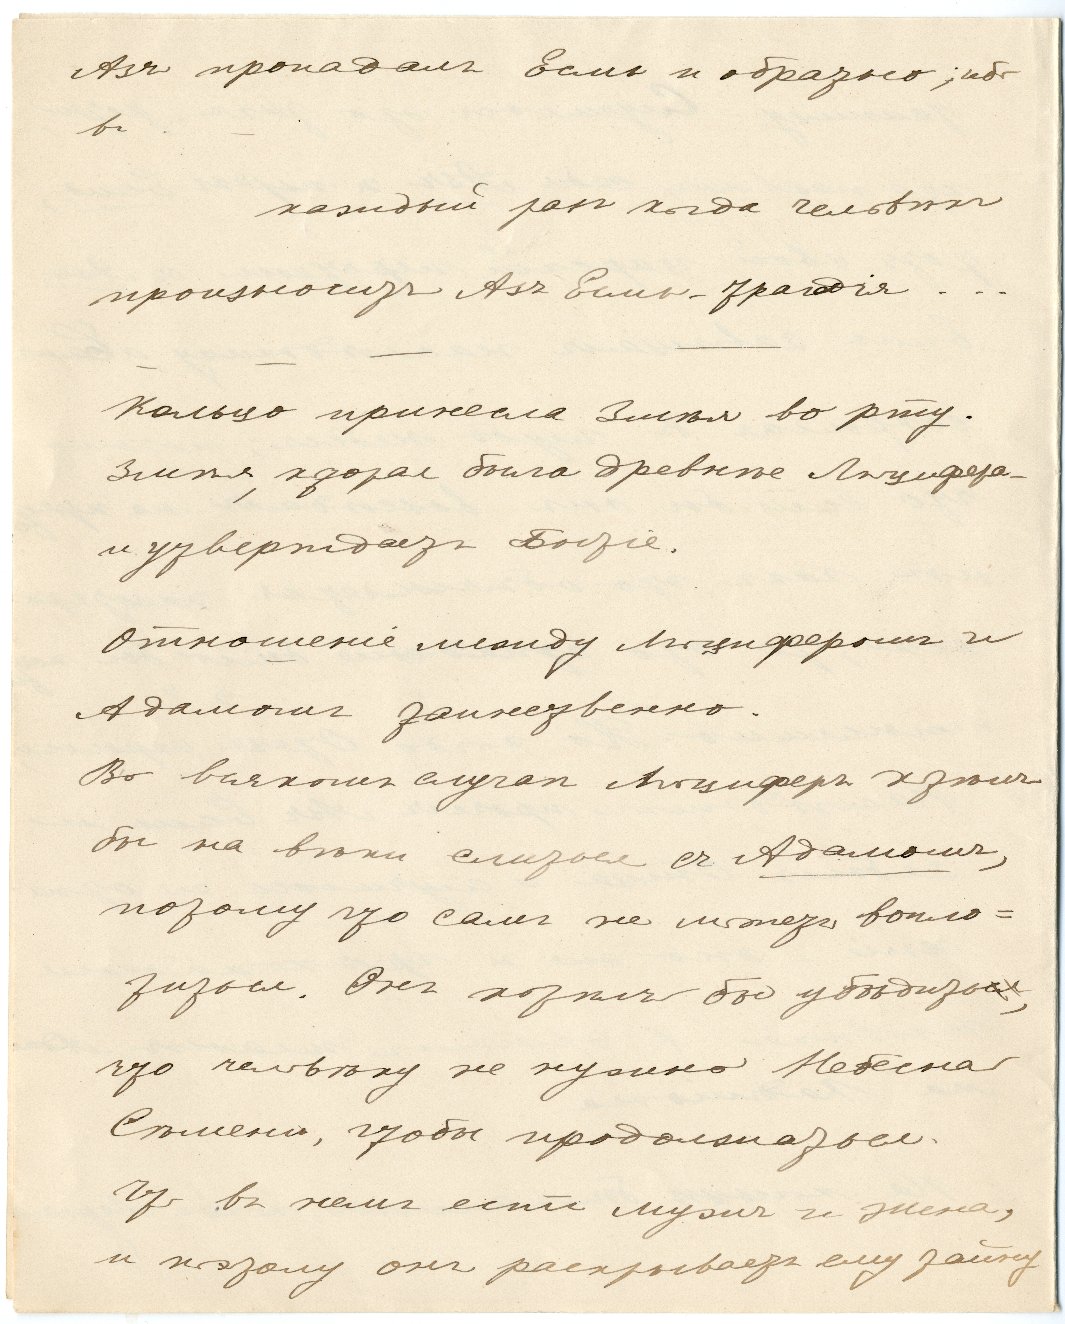 Азъ пропадалъ Есмь и обратно; ибо
въ
каждый разъ когда человѣкъ
произноситъ Азъ Есмь - трагедія . . .
Кольцо принесла Змѣя во рту.
Змѣя, которая была древнѣе Люцифера -
и утверждаетъ Бытіе.
Отношеніе между Люциферомъ и
Адамомъ таинственно.
Во всякомъ случаѣ Люциферъ хотѣлъ
бы на вѣки слиться съ Адамомъ,
потому что самъ не можетъ вопло=
титься. Онъ хотѣлъ бы убѣдить,
что человѣку не нужно Небесна
Сѣмени, чтобы продолжаться.
Что въ немъ есть мужъ и жена,
и поэтому онъ раскрываетъ ему тайну